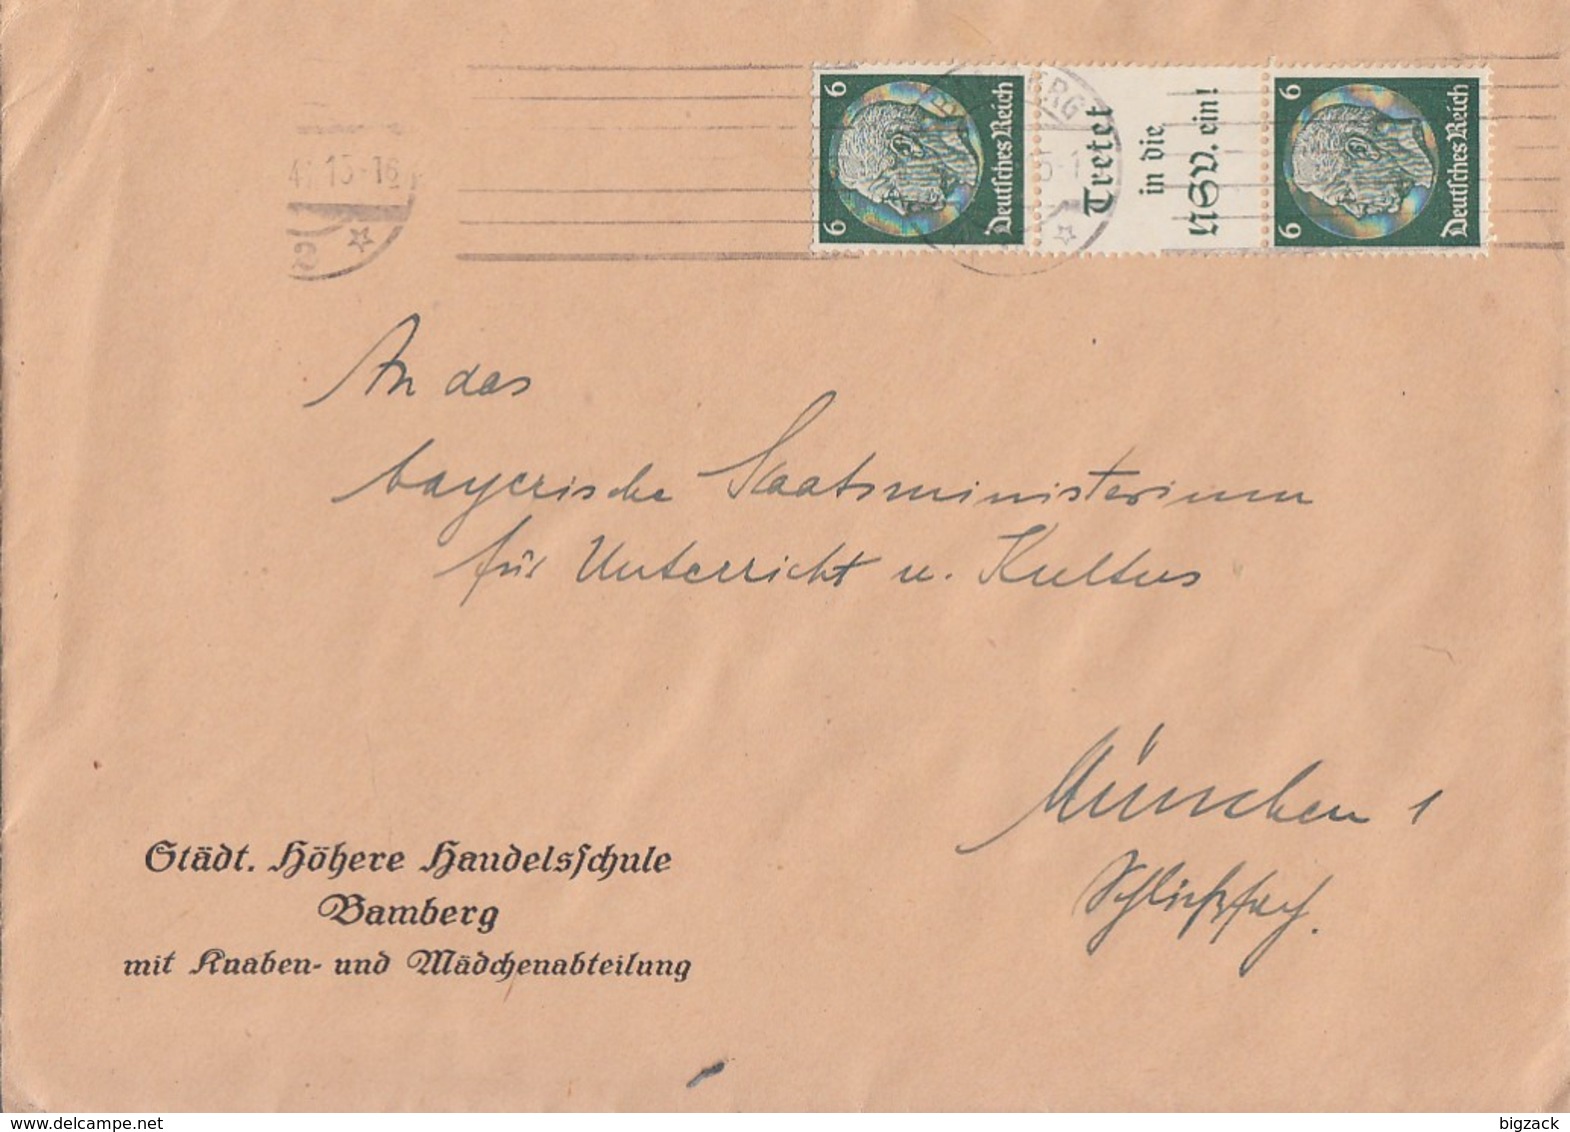 6 6 Deutsches Reich
Tretet
in die
NSV. ein!
6 6 Deutsches Reich
15-16
An das
bayerische Staatsministerium
für Unterricht u. Kultus
München 1
Schließfach.
Städt. Höhere Handelsschule
Bamberg
mit Knaben- und Mädchenabteilung
delcampe.net
bigzack